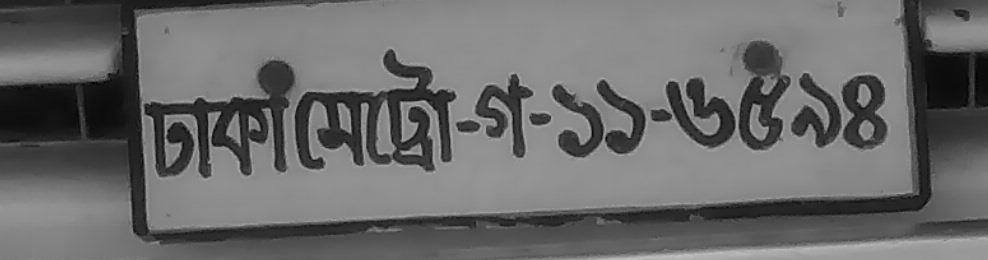 ঢাকা মেট্রো-গ-১১-৬৫৯৪